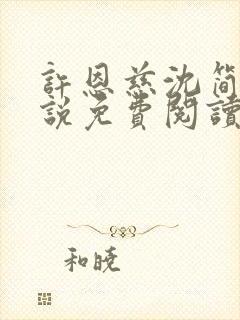 許恩慈沈簡
說免費閱讀
和曉